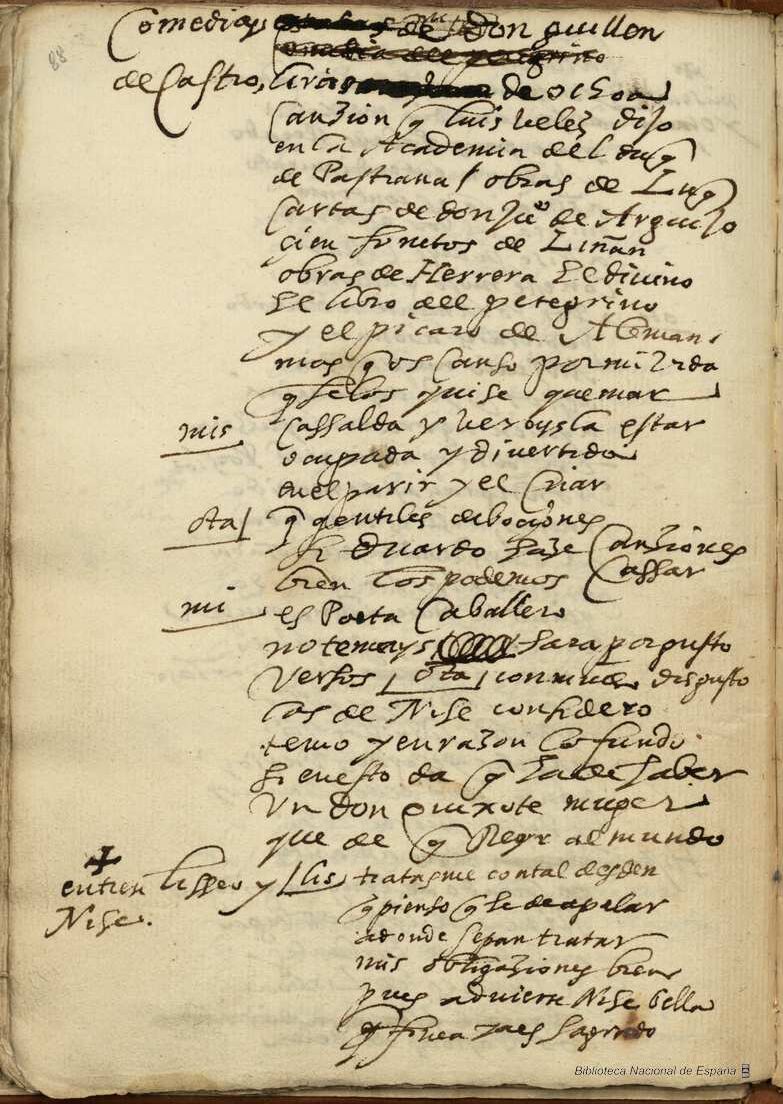 88
Comedias de don guillen
de Castro, liras de ochoa
Canzion q luis velez dijo
en la Academia del duq
de Pastrana / obras de Luq
Cartas de don Ju° de Arguijo
çien fructos de Liñan
obras de Herrera El divino
El libro del peregrino
y el picaro de Aleman
mas q os canso por mi vida
q se los quise quemar
mis Cassalda y vereysla estar
ocupada y divertida
en el parir y el Criar
ota q gentiles deboçiones
si Eduardo haze Canziones
bien los podemos Cassar
mi es Poeta Caballero
no temays hara por gusto
Versos / ota / con mucho disgusto
las de Nise considero
temo y en razon lo fundo
si en esto da q ha de haber
Un don quixote muger
que de q Reyr al mundo
entren lisseo y
Nise.
lis tratasme con tal desden
q pienso q se de apelar
adonde sepan tratar
mis obligaziones bien
pues advierte Nise bella
q finea ya es sagrado
Biblioteca Nacional de España